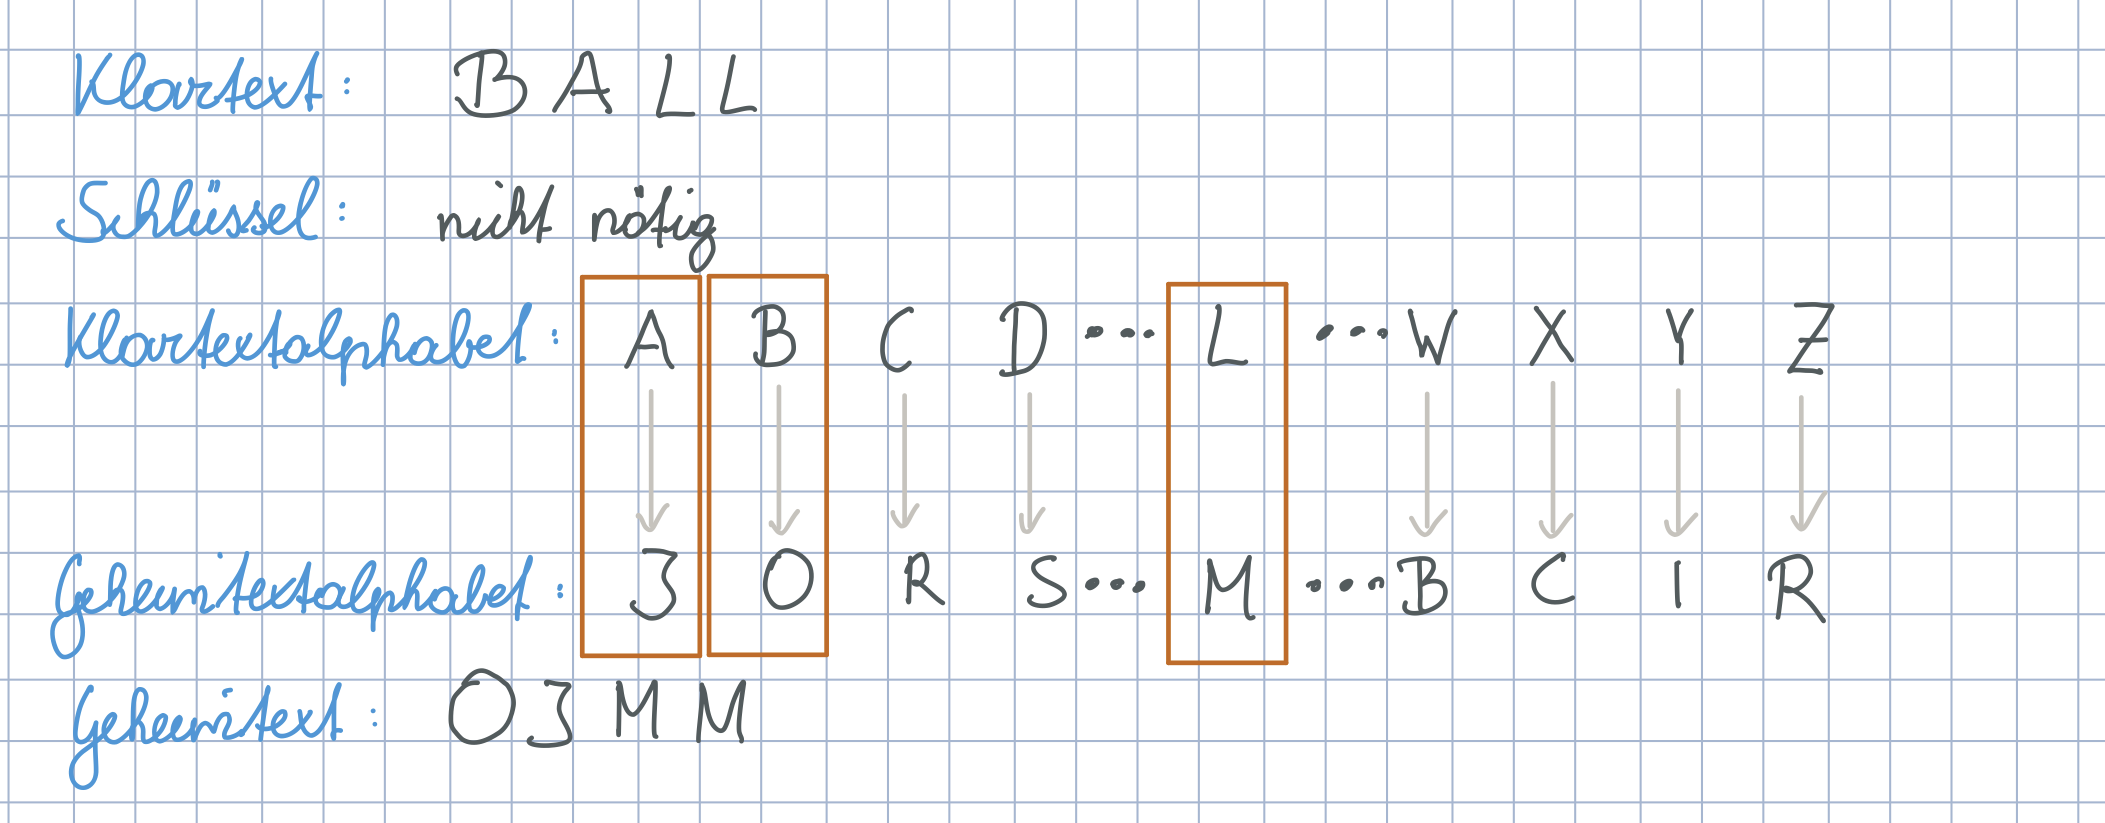 Klartext: BALL
Schlüssel: nicht nötig
Klartextalphabet: A B C D ... L ... W X Y Z
Geheimtextalphabet: J O R S ... M ... B C I R
Geheimtext: OJMM